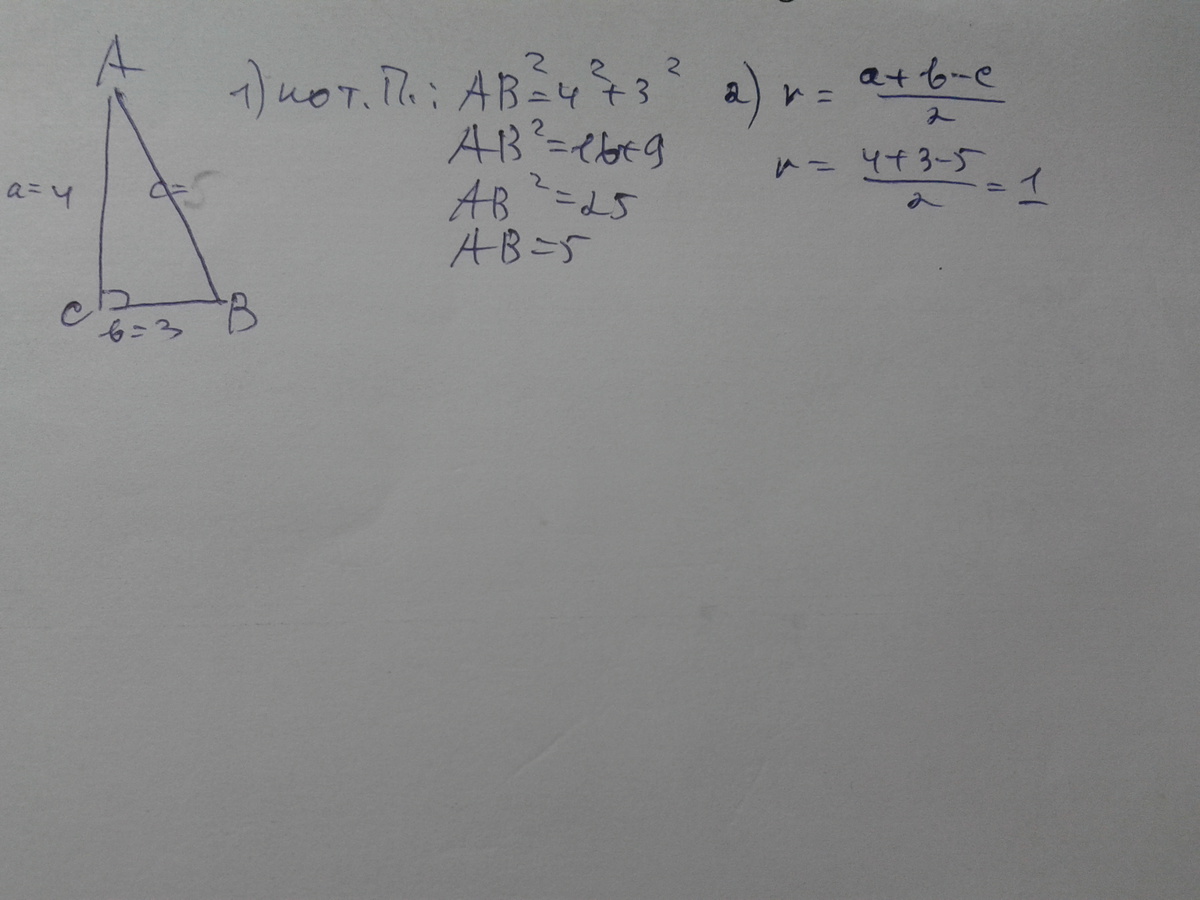 A
a=4
c=5
C
B
b=3
1) по т. П.: AB²=4²+3²
AB²=16+9
AB²=25
AB=5
2) r = (a+b-c)/2
r = (4+3-5)/2 = 1